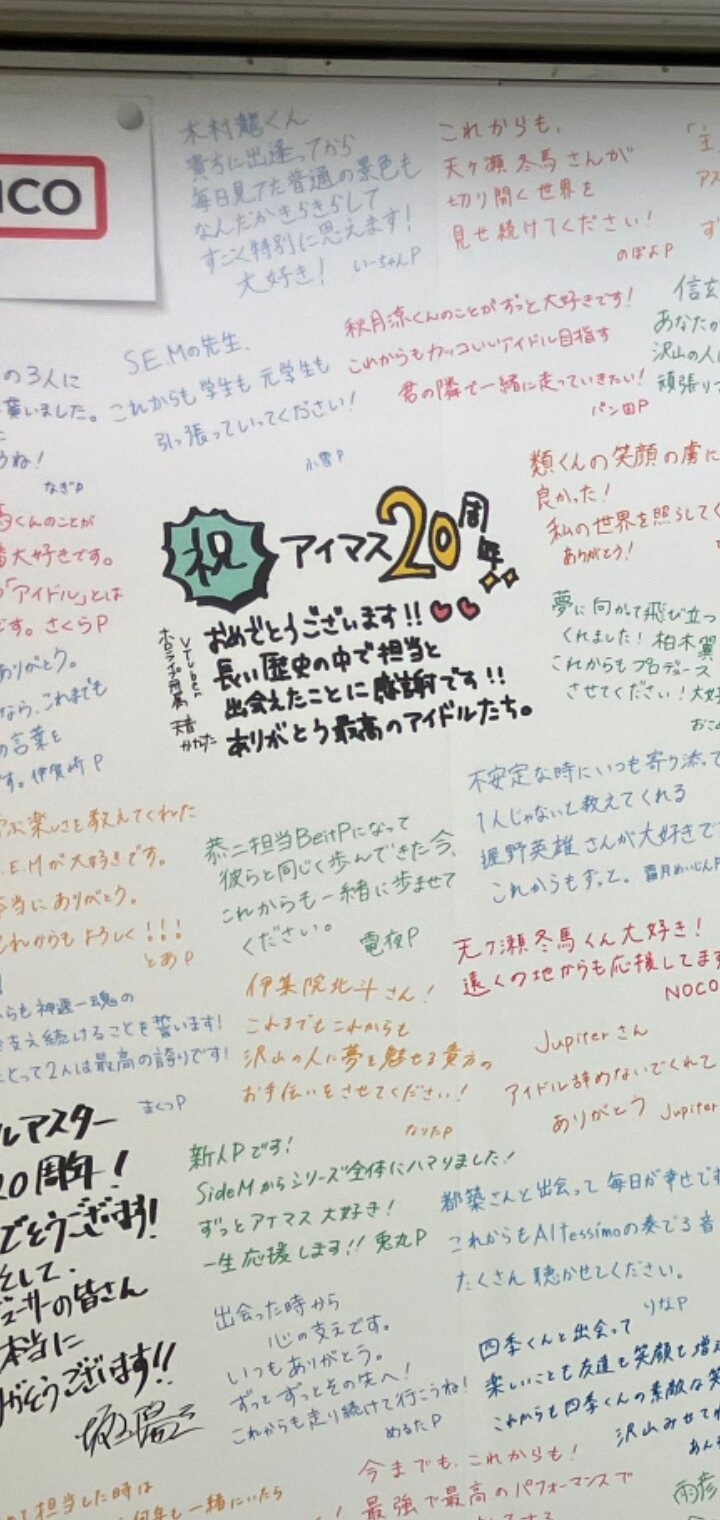 ICO
木村龍くん
貴方に出逢ってから
毎日見てた普通の景色も
なんだかきらきらして
すごく特別に思えます!
大好き! いーちゃんP
これからも、
天ヶ瀬冬馬さんが
切り開く世界を
見せ続けてください!
のぽよP
秋月涼くんのことがずっと大好きです!
これからもカッコいいアイドル目指す
君の隣で一緒に走っていきたい!
パン田P
信玄
あなたが
沢山の人に
頑張りつ
の3人に
貰いました。
うね!
なぎP
S.E.Mの先生、
これからも学生も元学生も
引っ張っていってください!
小雪P
くんのことが
大好きです。
「アイドル」とは
です。さくらP
類くんの笑顔の虜に
良かった!
私の世界を照らしてく
ありがとう!
祝 アイマス20周年
おめでとうございます!!
長い歴史の中で担当と
出会えたことに感謝です!!
ありがとう最高のアイドルたち。
VTuber
ホロライブ所属
天音かなた
夢に向かって飛び立つ
くれました!柏木翼
これからもプロデュース
させてください!大好
ありがとう。
なら、これまでも
の言葉を
す。伊賀崎P
不安定な時にいつも寄り添って
1人じゃないと教えてくれる
握野英雄さんが大好きで
これからもずっと。霜月めいじんP
ぶ楽しさを教えてくれた
.E.Mが大好きです。
本当にありがとう。
これからもよろしく!!!
とあP
恭二担当BeitPになって
彼らと同じく歩んできた今、
これからも一緒に歩ませて
ください。
電夜P
天ヶ瀬冬馬くん大好き!
遠くの地からも応援してます
NOCO
らも神速一魂の
を支え続けることを誓います!
とって2人は最高の誇りです!
まくつP
伊集院北斗さん!
これまでもこれからも
沢山の人に夢を魅せる貴方の
お手伝いをさせてください!
なりたP
Jupiterさん
アイドル辞めないでくれて
ありがとう Jupiter
ルアスター
20周年!
でとうございます!
そして、
ューサーの皆さん
本当に
がとうございます!!
新人Pです!
SideMからシリーズ全体にハマりました!
ずっとアイマス大好き!
一生応援します!! 兎丸P
都築さんと出会って毎日が幸せです
これからもAltessimoの奏でる音
たくさん聴かせてください。
りなP
出会った時から
心の支えです。
いつもありがとう。
ずっとずっとその先へ!
これからも走り続けて行こうね!
めるたP
四季くんと出会って
楽しいことも友達も笑顔も増え
これからも四季くんの素敵な笑
沢山みせて
今までも、これからも!
最強で最高のパフォーマンスで
て担当した時は
何年も一緒にいたら
雨彦